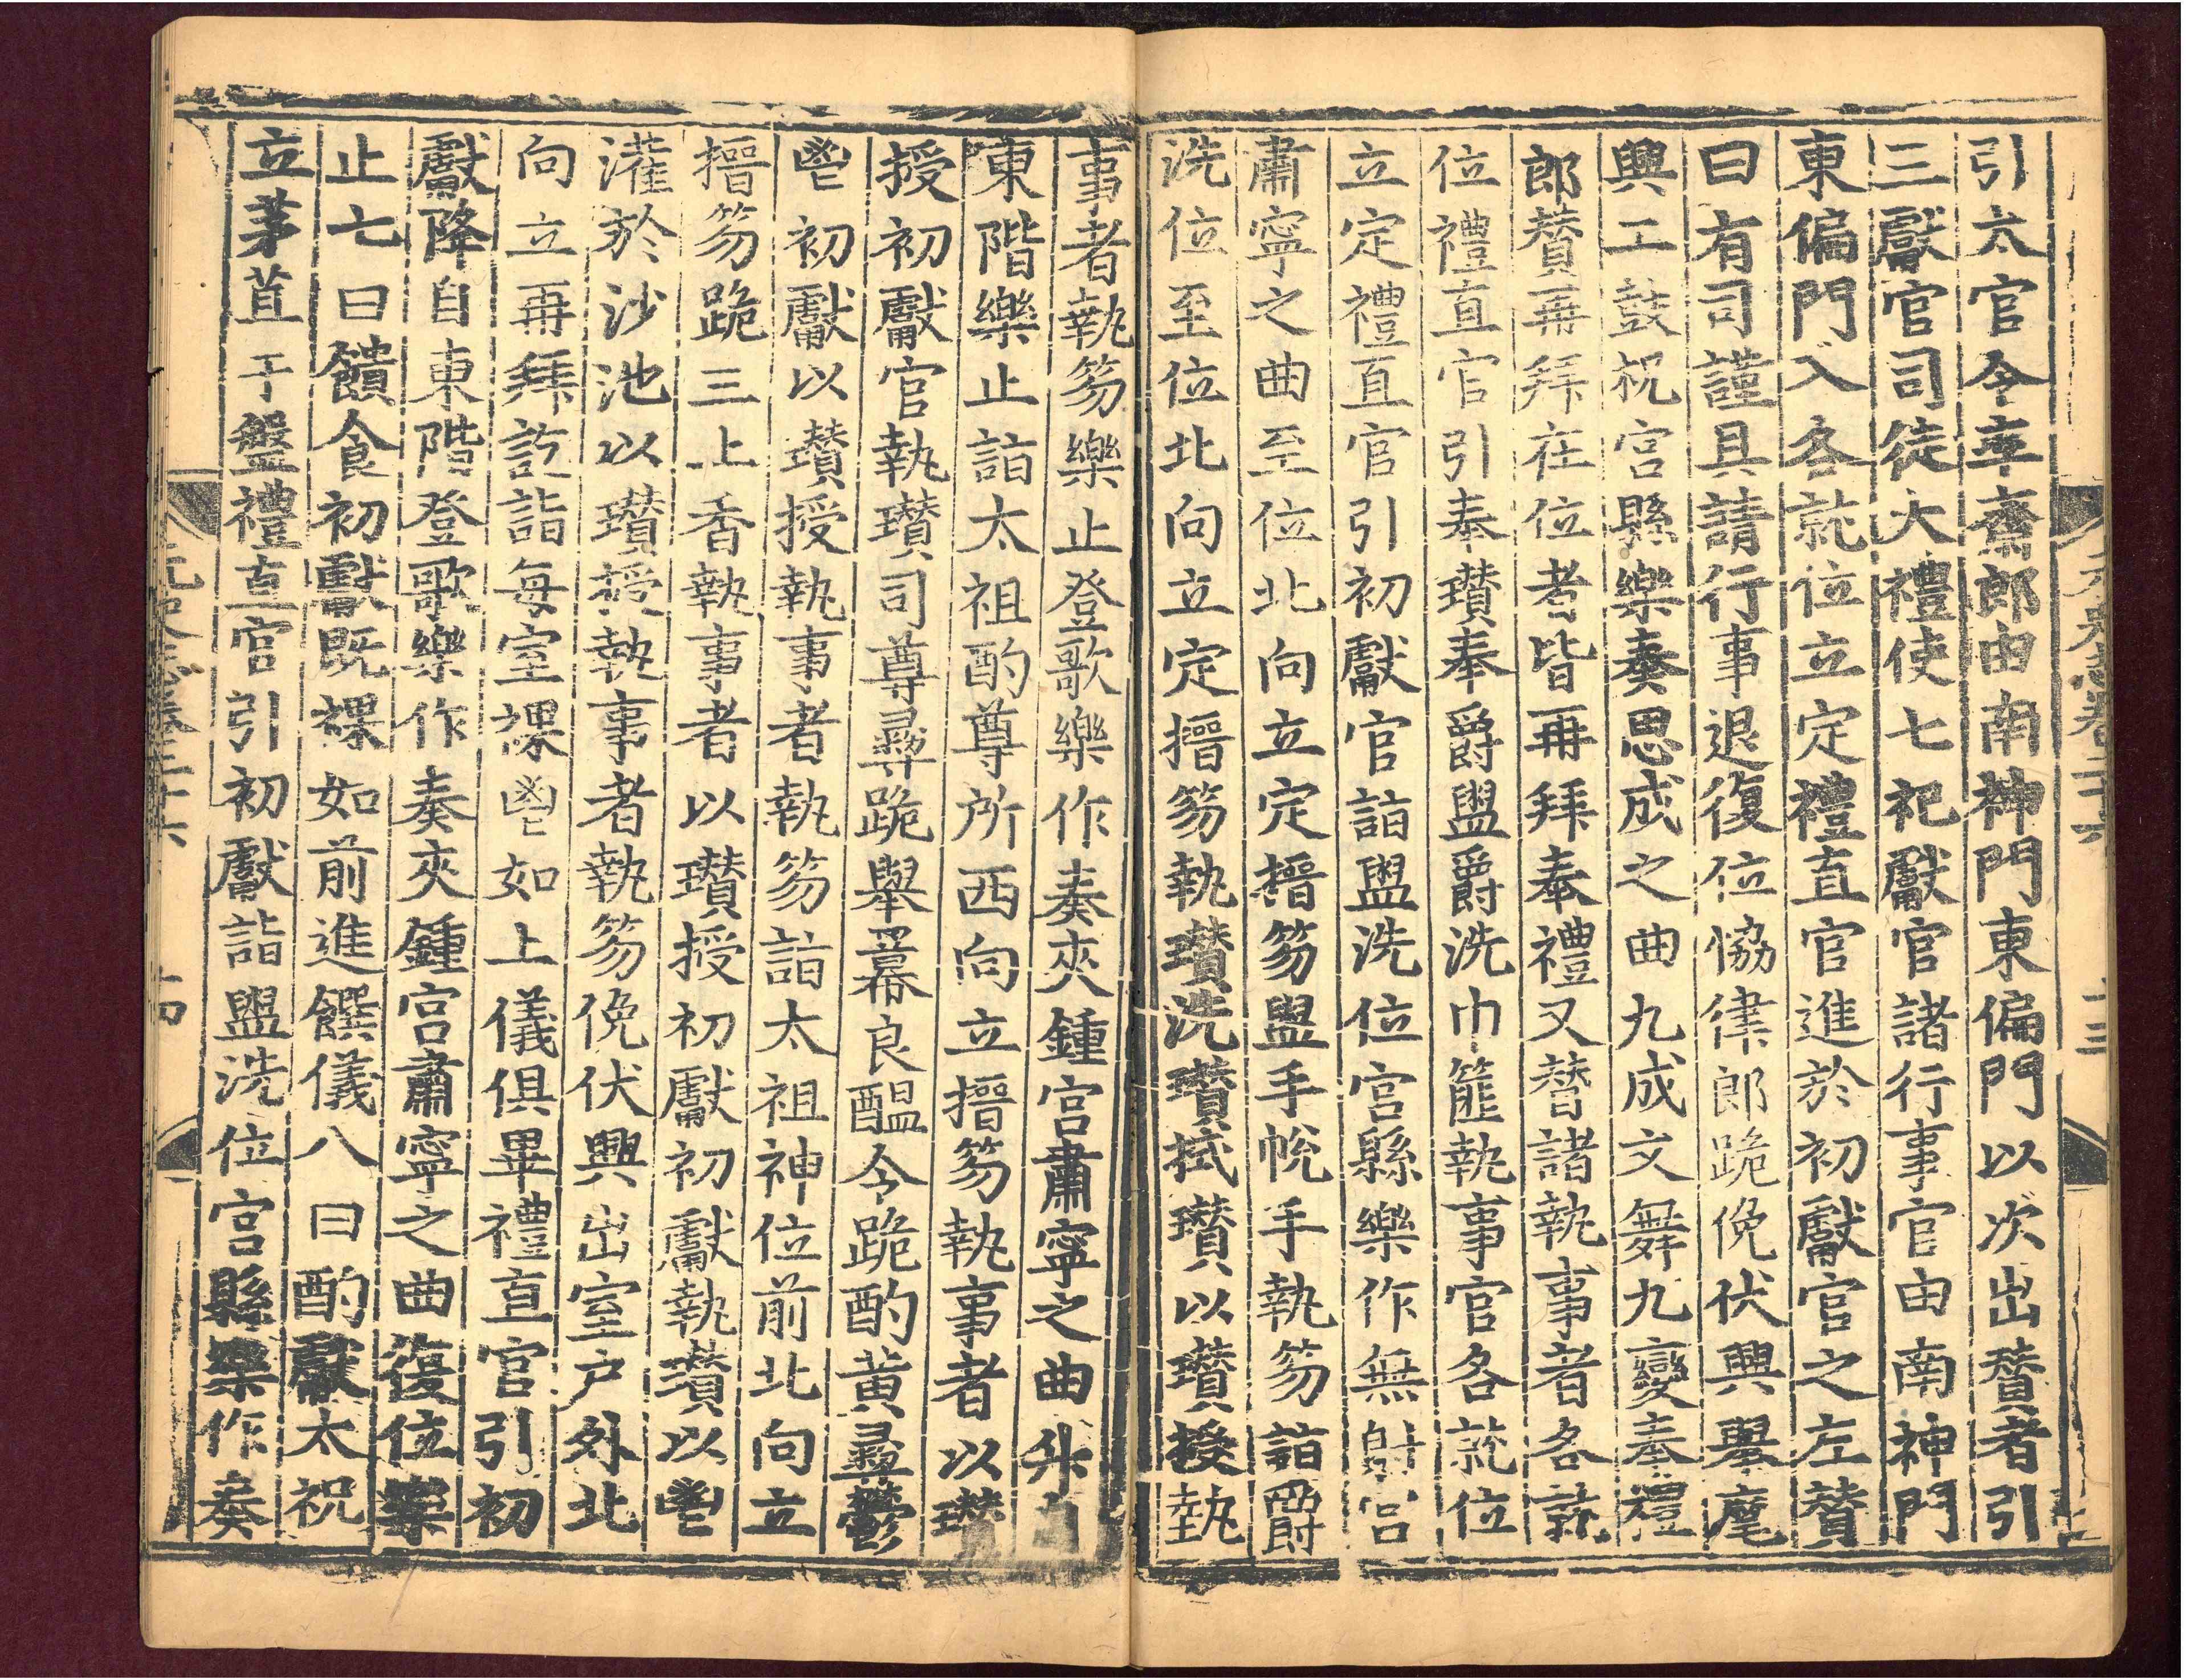 引太官令率齋郎由南神門東偏門以次出贊者引
三獻官司徒大禮使七祀獻官諸行事官由南神門
東偏門入各就位立定禮直官進於初獻官之左贊
曰有司謹具請行事退復位協律郎跪俛伏興舉麾
興工鼓柷宮縣樂奏思成之曲九成文舞九變奉禮
郎贊再拜在位者皆再拜奉禮又贊諸執事者各就
位禮直官引奉瓚奉爵盥爵洗巾篚執事官各就位
立定禮直官引初獻官詣盥洗位宮縣樂作無射宮
肅寧之曲至位北向立定搢笏盥手帨手執笏詣爵
洗位至位北向立定搢笏執瓚洗瓚拭瓚以瓚授執
事者執笏樂止登歌樂作奏夾鍾宮肅寧之曲升自
東階樂止詣太祖酌尊所西向立搢笏執事者以瓚
授初獻官執瓚司尊彞跪舉羃良醞令跪酌黃彞鬱
鬯初獻以瓚授執事者執笏詣太祖神位前北向立
搢笏跪三上香執事者以瓚授初獻初獻執瓚以鬯
灌於沙池以瓚授執事者執笏俛伏興出室戶外北
向立再拜訖詣每室祼鬯如上儀俱畢禮直官引初
獻降自東階登歌樂作奏夾鍾宮肅寧之曲復位樂
止七曰饋食初獻既祼如前進饌儀八曰酌獻太祝
立茅苴于盤禮直官引初獻詣盥洗位宮縣樂作奏
元史志卷二十六
十四